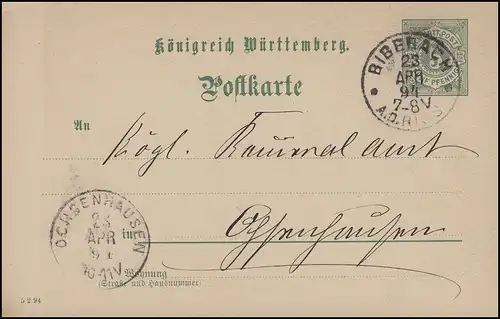 Königreich Württemberg.
Postkarte
WÜRTT. POST
5
FÜNF PFENNIG
BIBERACH
23
APR
94
7-8V
A.D. RISS
An
Kgl. Kameralamt
in
Ochsenhausen
OCHSENHAUSEN
23
APR
94
10-11V
Wohnung
(Straße und Hausnummer)
5 2. 94